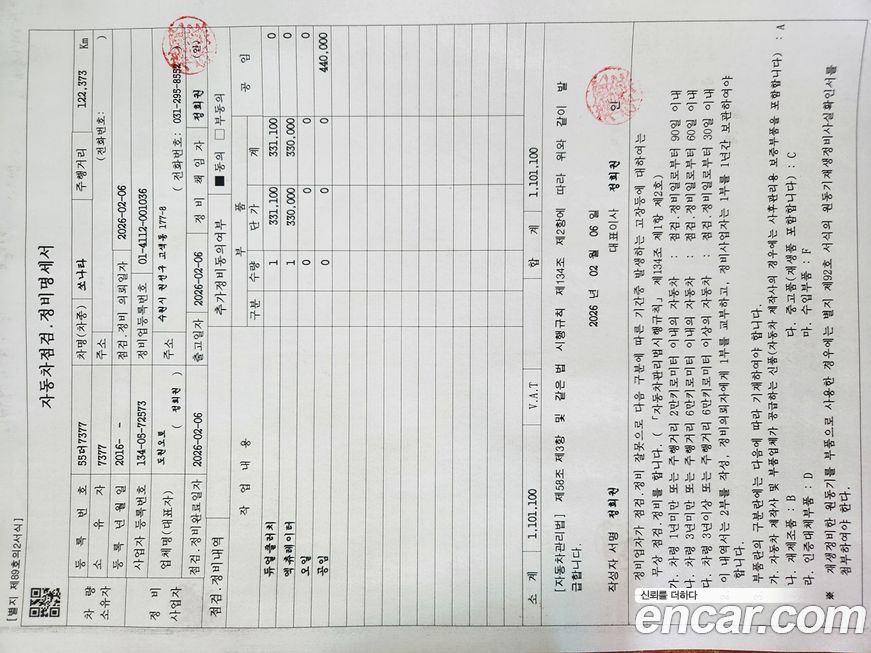 [별지 제89호의2서식]
자동차점검.정비명세서
차량 소유자
등록번호 55더7377 차명(차종) 쏘나타 주행거리 122,373 Km
소유자 7377 주소 (전화번호: )
등록년월일 2016- - 점검.정비 의뢰일자 2026-02-06
정비 사업자
사업자 등록번호 134-05-72573 정비업등록번호 01-4112-001036
업체명(대표자) 도원오토 ( 정희권 ) 주소 수원시 권선구 고색동 177-8 ( 전화번호: 031-295-8552 )
점검.정비완료일자 2026-02-06 출고일자 2026-02-06 정비 책임자 정희권 (인)
점검.정비내역 추가정비동의여부 ■ 동의 □ 부동의
작업내용 부품 공임
구분 수량 단가 계
듀얼클러치 1 331,100 331,100 0
엑츄레이터 1 330,000 330,000 0
오일 0 0 0 0
공임 0 0 0 440,000
소계 1,101,100 V.A.T 합계 1,101,100
[자동차관리법] 제58조 제3항 및 같은 법 시행규칙 제134조 제2항에 따라 위와 같이 발
급합니다.
2026 년 02 월 06 일
작성자 서명 정희권 대표이사 정희권 인
정비업자가 점검.정비 잘못으로 다음 구분에 따른 기간중 발생하는 고장등에 대하여는
무상 점검.정비를 합니다. (「자동차관리법시행규칙」 제134조 제1항 제2호)
가. 차령 1년미만 또는 주행거리 2만키로미터 이내의 자동차 : 점검.정비일로부터 90일 이내
나. 차령 3년미만 또는 주행거리 6만키로미터 이내의 자동차 : 점검.정비일로부터 60일 이내
다. 차령 3년이상 또는 주행거리 6만키로미터 이상의 자동차 : 점검.정비일로부터 30일 이내
2. 이 내역서는 2부를 작성, 정비의뢰자에게 1부를 교부하고, 정비사업자는 1부를 1년간 보관하여야
합니다.
3. 부품란의 구분란에는 다음에 따라 기재하여야 합니다.
가. 자동차 제작사 및 부품업체가 공급하는 신품(자동차 제작사의 경우에는 사후관리용 보증부품을 포함합니다) : A
나. 재제조품 : B 다. 중고품(재생품 포함합니다) : C
라. 인증대체부품 : D 마. 수입부품 : F
※ 재생정비한 원동기를 부품으로 사용한 경우에는 별지 제92호 서식의 원동기재생정비사실확인서를
첨부하여야 한다.
신뢰를 더하다
encar.com